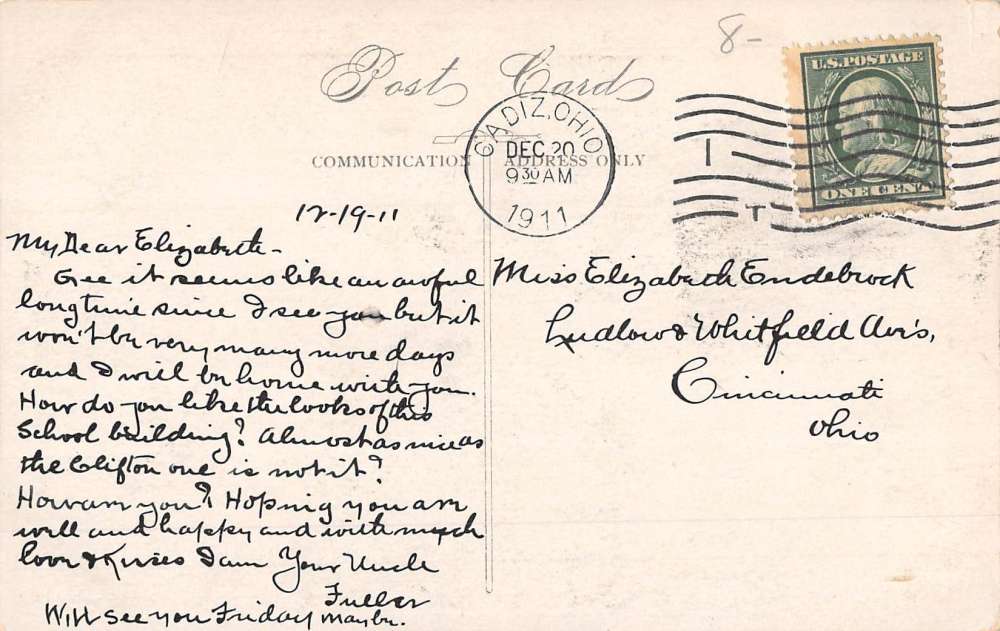 8-
Post Card
U.S. POSTAGE
ONE CENT
CADIZ, OHIO
DEC 20
9 30 AM
1911
COMMUNICATION
ADDRESS ONLY
12-19-11
My Dear Elizabeth-
Gee it seems like an awful
long time since I see you but it
won't be very many more days
and I will be home with you.
How do you like the looks of this
School building? Almost as nice as
the Clifton one is not it?
How are you? Hoping you are
well and happy and with much
love & Kisses I am Your Uncle
Fuller
Will see you Friday maybe.
Miss Elizabeth Endebrock
Ludlow & Whitfield Av's,
Cincinnati
Ohio